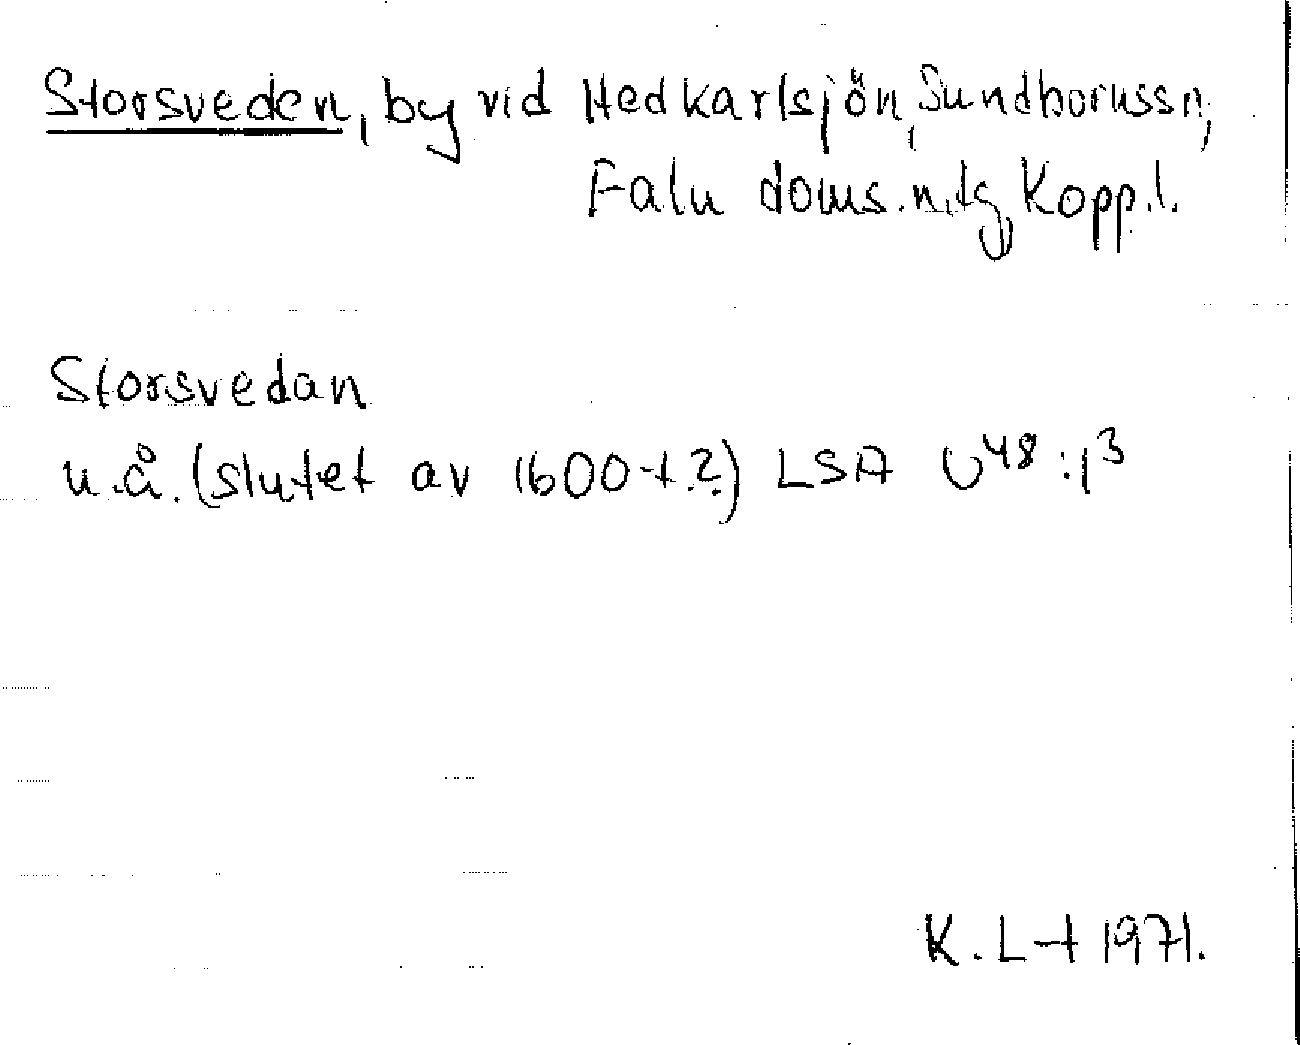 Storsveden, by vid Hedkarlsjön, Sundborns sn,
Falu doms. n. tg, Kopp. l.
Storsvedan
u.å. (slutet av 1600-t.?) LSA U48:13
K. L-t 1971.